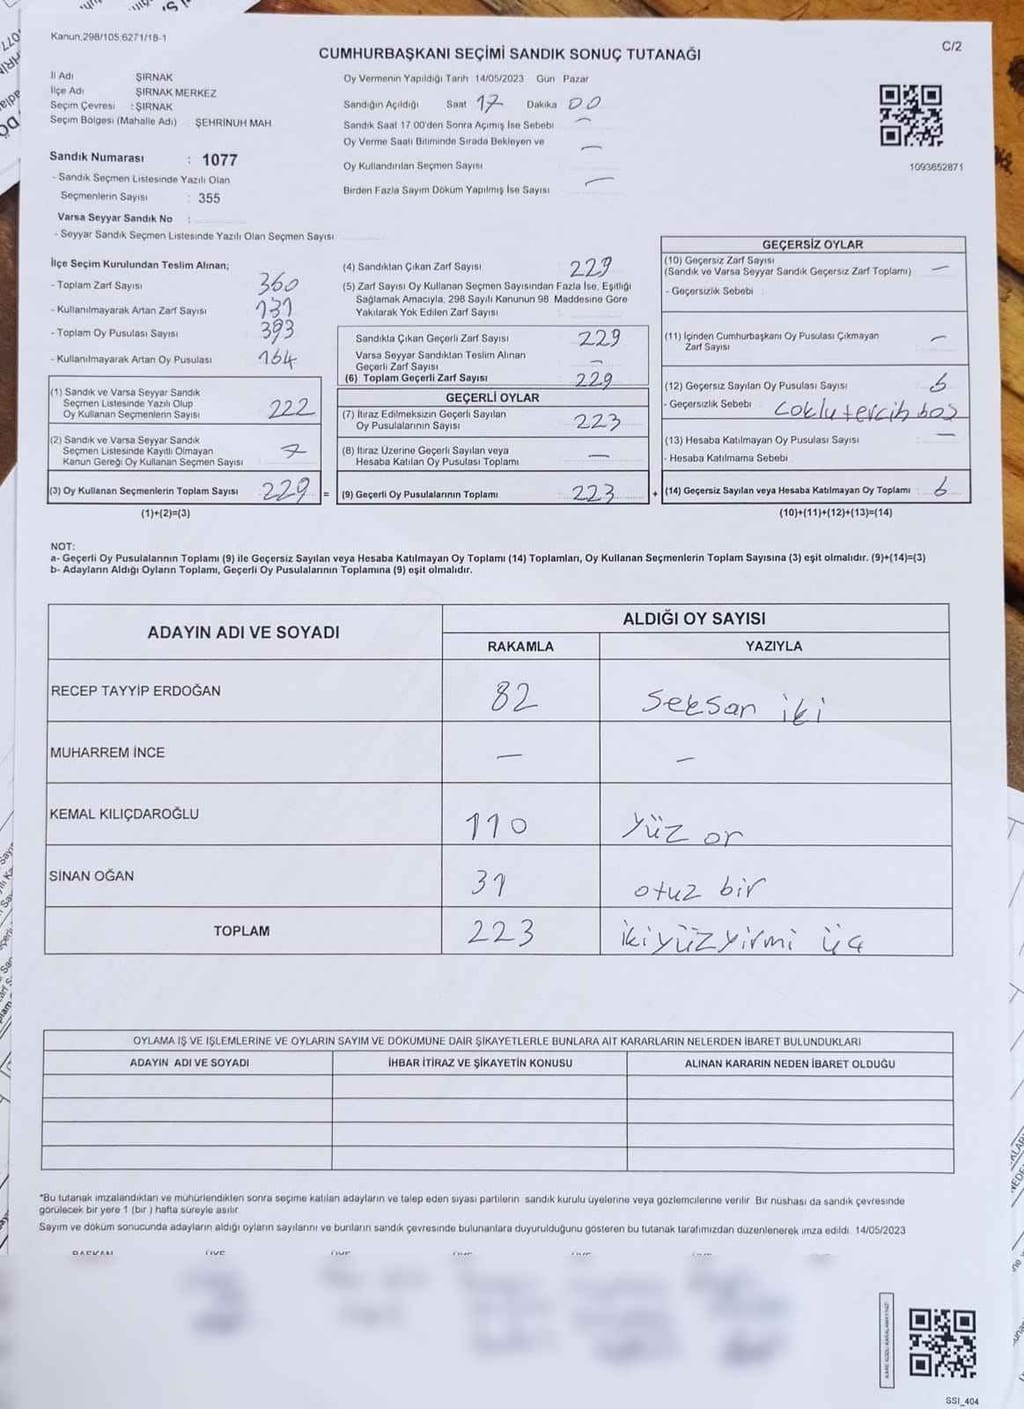 Kanun.298/105.6271/18-1
C/2
CUMHURBAŞKANI SEÇİMİ SANDIK SONUÇ TUTANAĞI
İl Adı ŞIRNAK
İlçe Adı ŞIRNAK MERKEZ
Seçim Çevresi : ŞIRNAK
Seçim Bölgesi (Mahalle Adı) ŞEHRİNUH MAH
Sandık Numarası : 1077
- Sandık Seçmen Listesinde Yazılı Olan
Seçmenlerin Sayısı : 355
Varsa Seyyar Sandık No :
- Seyyar Sandık Seçmen Listesinde Yazılı Olan Seçmen Sayısı
Oy Vermenin Yapıldığı Tarih 14/05/2023 Gün Pazar
Sandığın Açıldığı Saat 17 Dakika 00
Sandık Saat 17 00'den Sonra Açımış İse Sebebi —
Oy Verme Saati Bitiminde Sırada Bekleyen ve
Oy Kullandırılan Seçmen Sayısı —
Birden Fazla Sayım Döküm Yapılmış İse Sayısı —
1093652871
İlçe Seçim Kurulundan Teslim Alınan;
- Toplam Zarf Sayısı 360
- Kullanılmayarak Artan Zarf Sayısı 131
- Toplam Oy Pusulası Sayısı 393
- Kullanılmayarak Artan Oy Pusulası 164
(1) Sandık ve Varsa Seyyar Sandık
Seçmen Listesinde Yazılı Olup
Oy Kullanan Seçmenlerin Sayısı 222
(2) Sandık ve Varsa Seyyar Sandık
Seçmen Listesinde Kayıtlı Olmayan
Kanun Gereği Oy Kullanan Seçmen Sayısı 7
(3) Oy Kullanan Seçmenlerin Toplam Sayısı 229 =
(1)+(2)=(3)
(4) Sandıktan Çıkan Zarf Sayısı 229
(5) Zarf Sayısı Oy Kullanan Seçmen Sayısından Fazla İse, Eşitliği
Sağlamak Amacıyla, 298 Sayılı Kanunun 98. Maddesine Göre
Yakılarak Yok Edilen Zarf Sayısı
Sandıkta Çıkan Geçerli Zarf Sayısı 229
Varsa Seyyar Sandıktan Teslim Alınan
Geçerli Zarf Sayısı —
(6) Toplam Geçerli Zarf Sayısı 229
GEÇERLİ OYLAR
(7) İtiraz Edilmeksizin Geçerli Sayılan
Oy Pusulalarının Sayısı 223
(8) İtiraz Üzerine Geçerli Sayılan veya
Hesaba Katılan Oy Pusulası Toplamı —
(9) Geçerli Oy Pusulalarının Toplamı 223 +
GEÇERSİZ OYLAR
(10) Geçersiz Zarf Sayısı
(Sandık ve Varsa Seyyar Sandık Geçersiz Zarf Toplamı) —
- Geçersizlik Sebebi :
(11) İçinden Cumhurbaşkanı Oy Pusulası Çıkmayan
Zarf Sayısı —
(12) Geçersiz Sayılan Oy Pusulası Sayısı 6
- Geçersizlik Sebebi çoklu tercih boş
(13) Hesaba Katılmayan Oy Pusulası Sayısı —
- Hesaba Katılmama Sebebi
(14) Geçersiz Sayılan veya Hesaba Katılmayan Oy Toplamı 6
(10)+(11)+(12)+(13)=(14)
NOT:
a- Geçerli Oy Pusulalarının Toplamı (9) ile Geçersiz Sayılan veya Hesaba Katılmayan Oy Toplamı (14) Toplamları, Oy Kullanan Seçmenlerin Toplam Sayısına (3) eşit olmalıdır. (9)+(14)=(3)
b- Adayların Aldığı Oyların Toplamı, Geçerli Oy Pusulalarının Toplamına (9) eşit olmalıdır.
ADAYIN ADI VE SOYADI
ALDIĞI OY SAYISI
RAKAMLA YAZIYLA
RECEP TAYYİP ERDOĞAN 82 Seksan iki
MUHARREM İNCE — —
KEMAL KILIÇDAROĞLU 110 Yüz on
SİNAN OĞAN 31 otuz bir
TOPLAM 223 ikiyüzyirmi üç
OYLAMA İŞ VE İŞLEMLERİNE VE OYLARIN SAYIM VE DÖKÜMÜNE DAİR ŞİKAYETLERLE BUNLARA AİT KARARLARIN NELERDEN İBARET BULUNDUKLARI
ADAYIN ADI VE SOYADI İHBAR İTİRAZ VE ŞİKAYETİN KONUSU ALINAN KARARIN NEDEN İBARET OLDUĞU
*Bu tutanak imzalandıktan ve mühürlendikten sonra seçime katılan adayların ve talep eden siyasi partilerin sandık kurulu üyelerine veya gözlemcilerine verilir. Bir nüshası da sandık çevresinde
görülecek bir yere 1 (bir ) hafta süreyle asılır
Sayım ve döküm sonucunda adayların aldığı oyların sayılarını ve bunların sandık çevresinde bulunanlara duyurulduğunu gösteren bu tutanak tarafımızdan düzenlenerek imza edildi. 14/05/2023
SSI_404